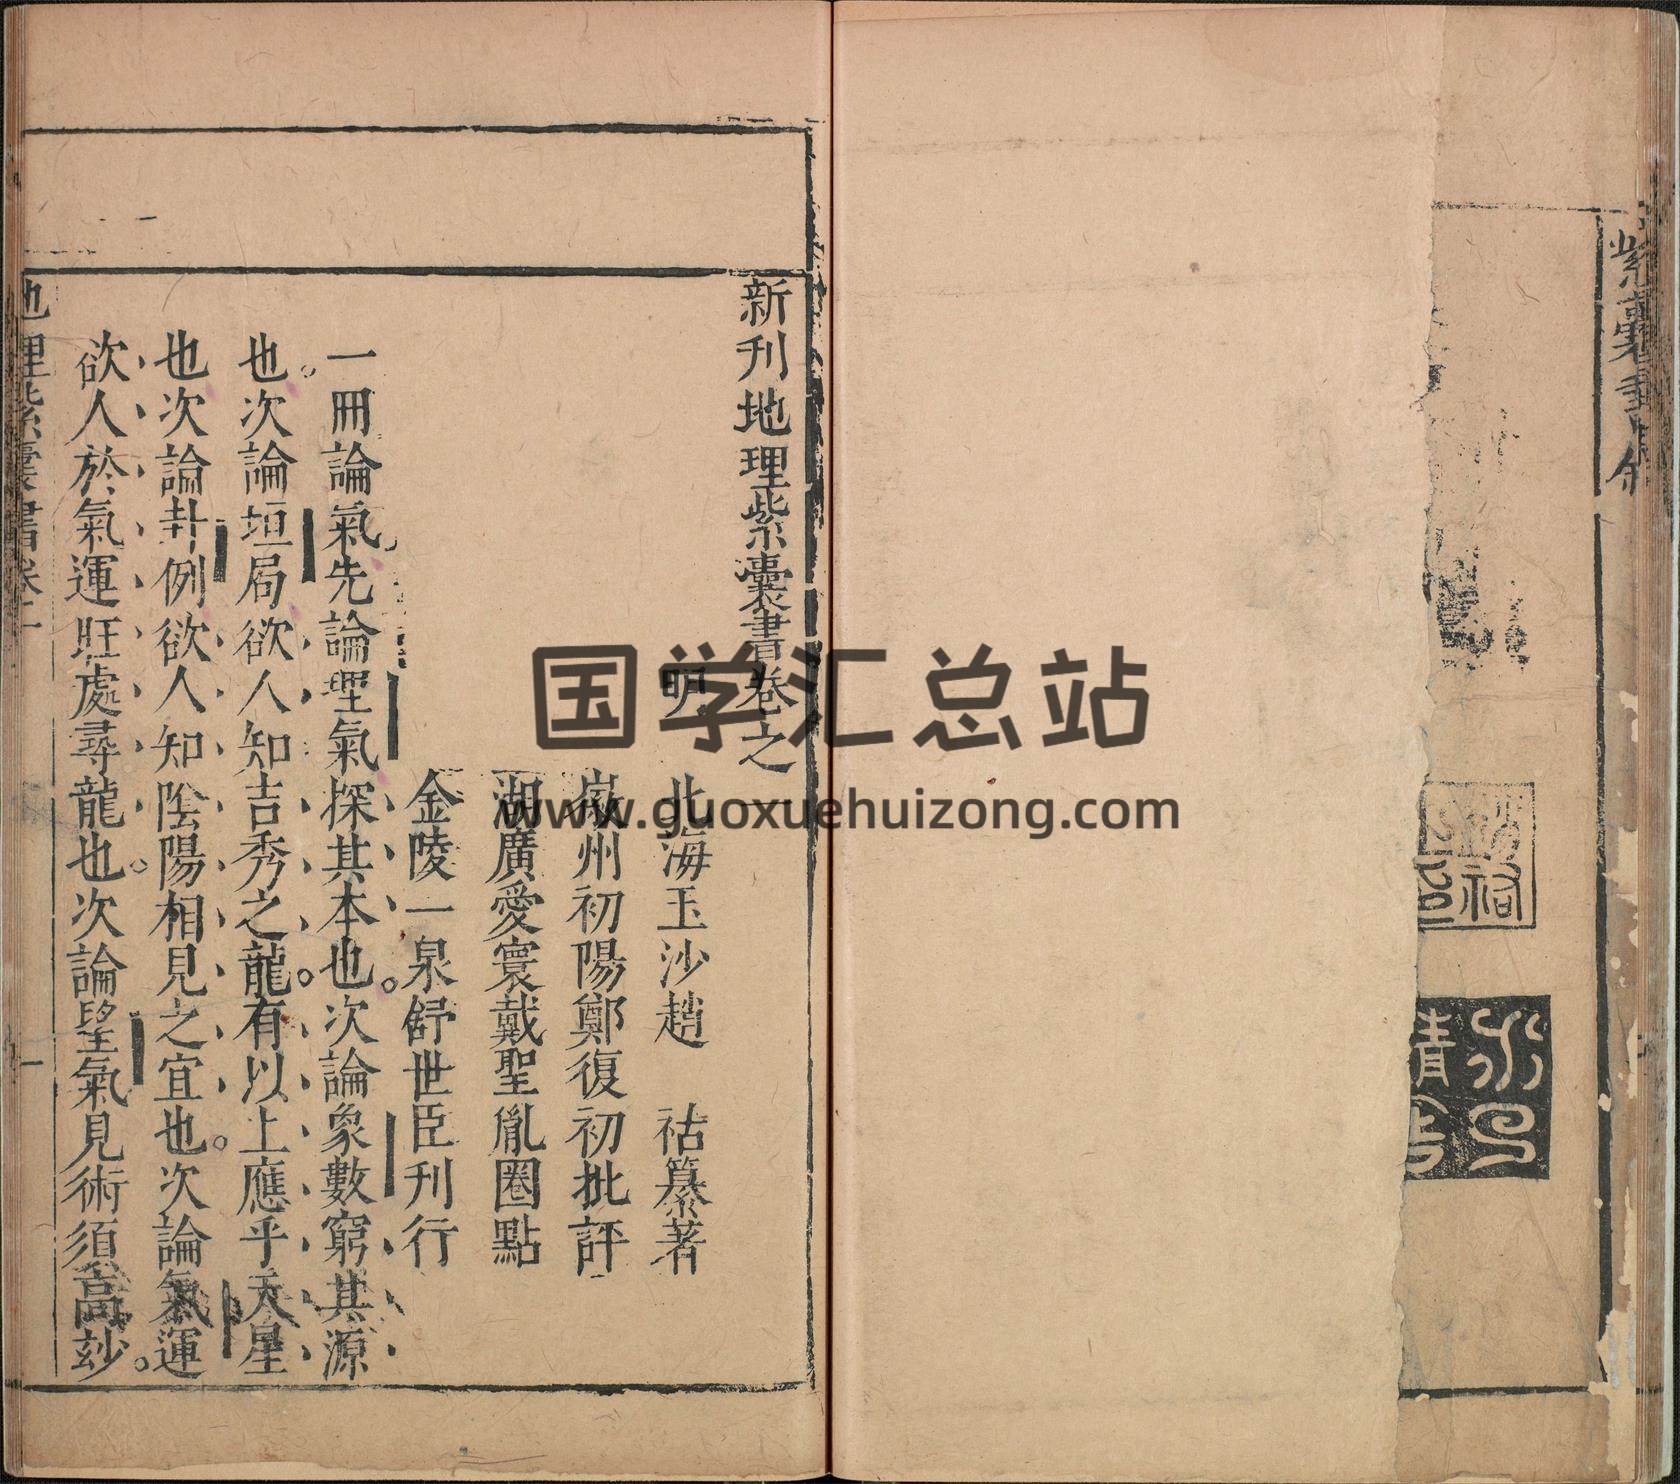 新刊地理紫囊書卷之一
明
北海玉沙趙 祜纂著
嶶州初陽鄭復初批評
湖廣愛寰戴聖胤圈點
金陵一泉舒世臣刊行
一冊論氣先論理氣探其本也。次論象數窮其源
也。次論垣局欲人知吉秀之龍。有以上應乎天星
也次論卦例欲人知陰陽相見之宜也。次論氣運
欲人於氣運旺處尋龍也。次論望氣見術須高玅。
地理紫囊書卷一
一
紫囊書
国学汇总站
www.guoxuehuizong.com